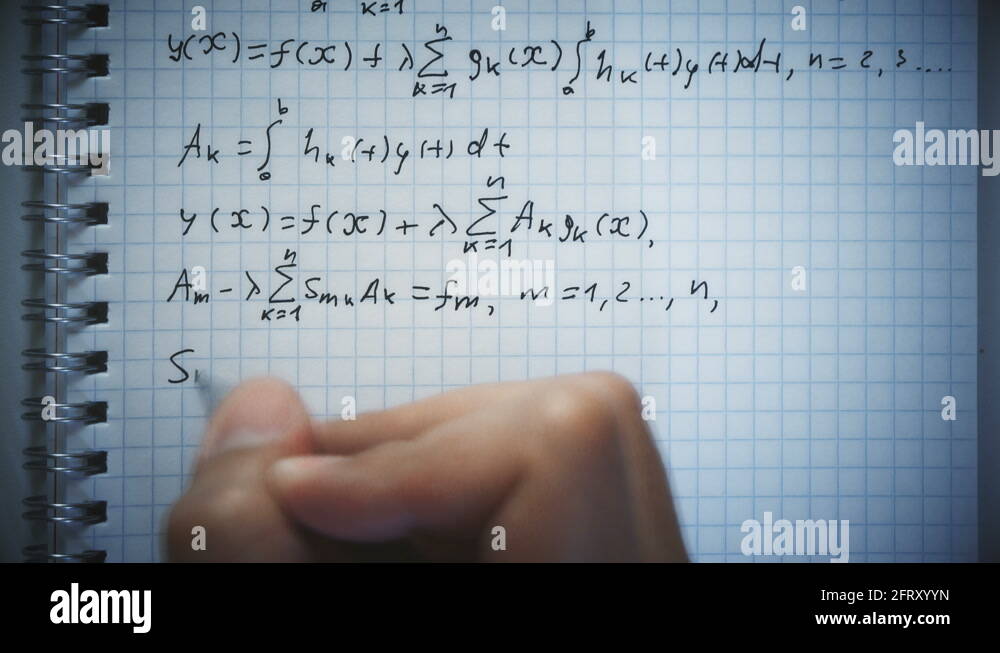 a k=1
y(x) = f(x) + λ∑ⁿₖ₌₁ gₖ(x) ∫ᵇₐ hₖ(t)y(t)dt, n = 2, 3....
Aₖ = ∫ᵇₐ hₖ(t)y(t)dt
y(x) = f(x) + λ∑ⁿₖ₌₁ Aₖgₖ(x),
Aₘ - λ∑ⁿₖ₌₁ SₘₖAₖ = fₘ, m = 1, 2..., n,
S
alamy
alamy
alamy
alamy
a a a a a a a
alamy
Image ID: 2FRXYYN
www.alamy.com